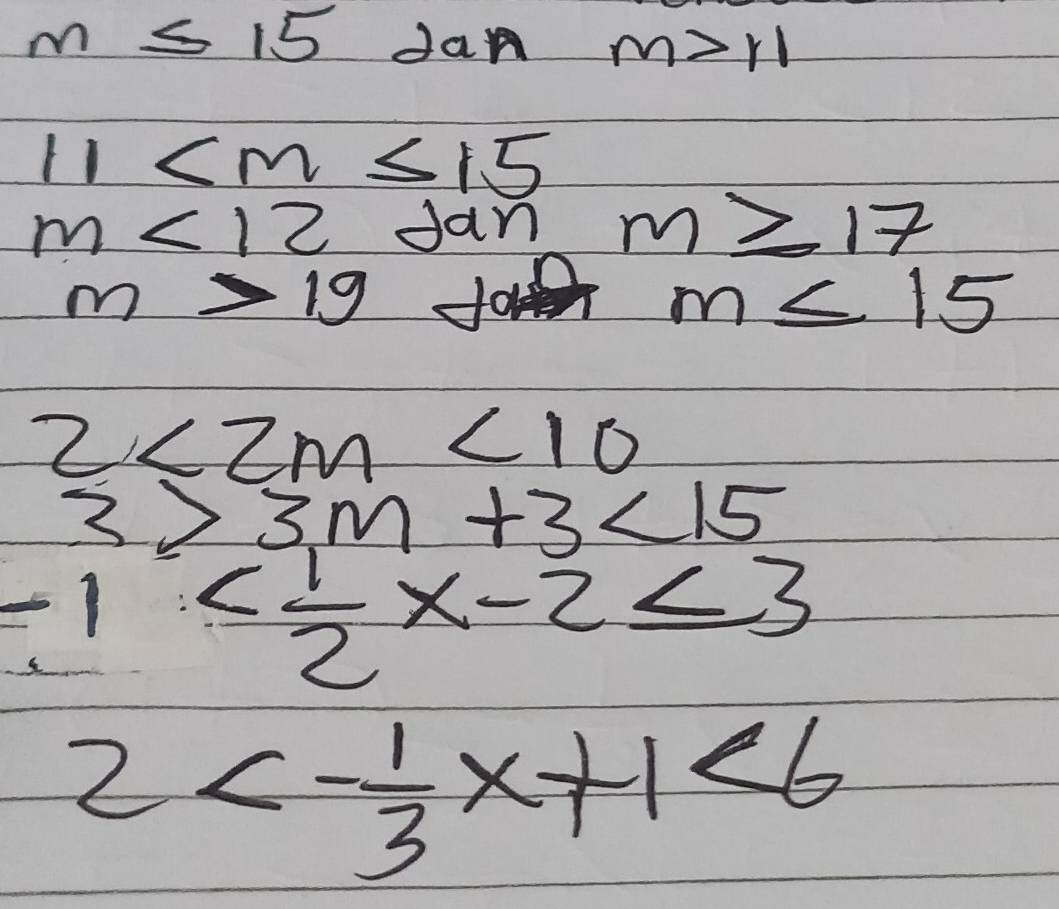 m ≤ 15 dan m > 11
11 < m ≤ 15
m < 12 dan m ≥ 17
m > 19 dan m ≤ 15
2 < 2m < 10
3 > 3m + 3 < 15
-1 < 1/2 x - 2 ≤ 3
2 < -1/3 x + 1 < 6